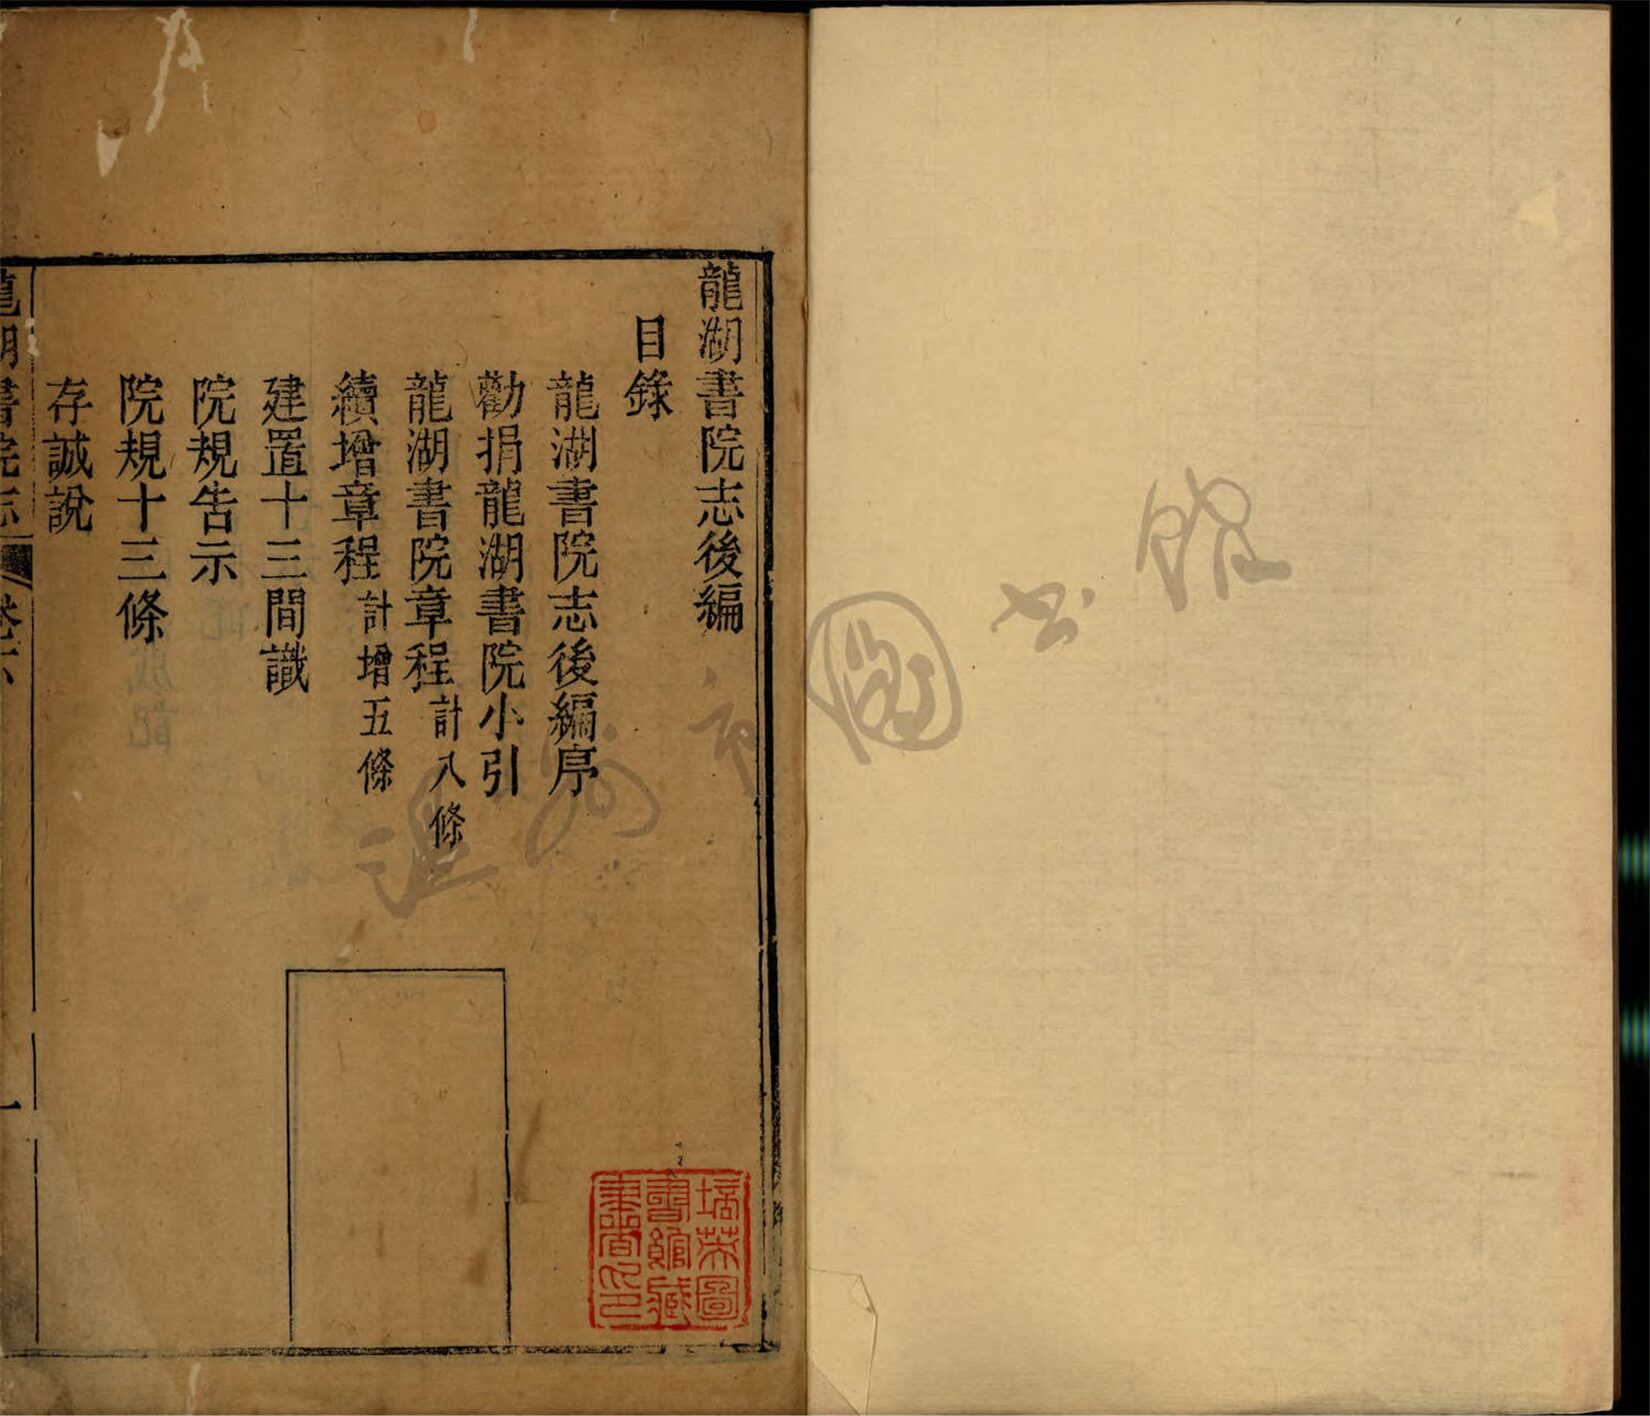 龍湖書院志後編
目錄
龍湖書院志後編序
勸捐龍湖書院小引
龍湖書院章程計八條
續增章程計增五條
建置十三間識
院規告示
院規十三條
存誠說
龍湖書院志
溫州市圖书館